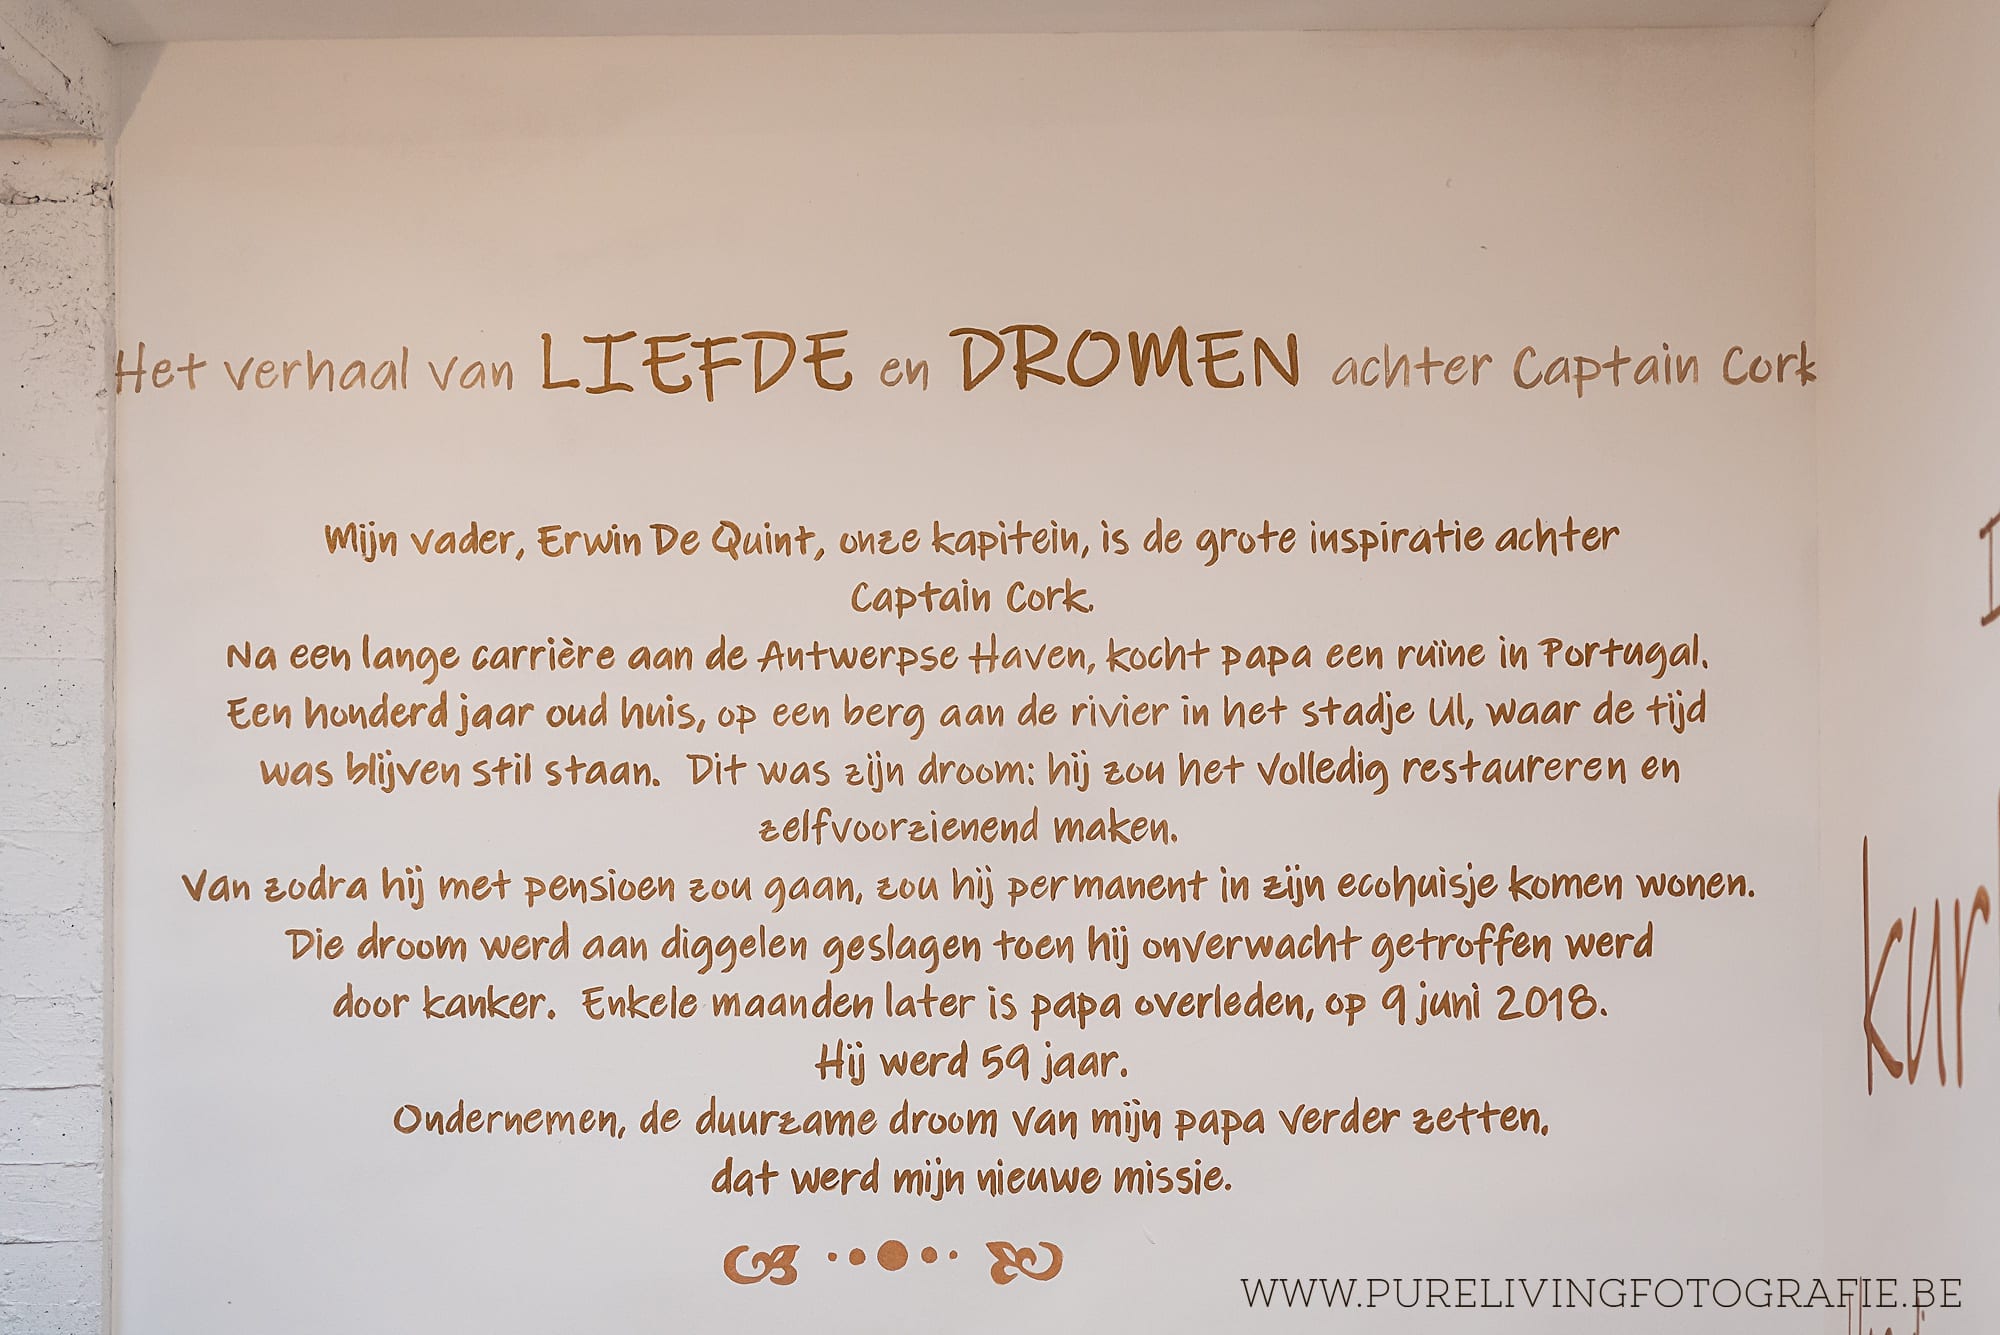 Het verhaal van LIEFDE en DROMEN achter Captain Cork
Mijn vader, Erwin De Quint, onze kapitein, is de grote inspiratie achter
Captain Cork.
Na een lange carrière aan de Antwerpse Haven, kocht papa een ruïne in Portugal.
Een honderd jaar oud huis, op een berg aan de rivier in het stadje Ul, waar de tijd
was blijven stil staan. Dit was zijn droom: hij zou het volledig restaureren en
zelfvoorzienend maken.
Van zodra hij met pensioen zou gaan, zou hij permanent in zijn ecohuisje komen wonen.
Die droom werd aan diggelen geslagen toen hij onverwacht getroffen werd
door kanker. Enkele maanden later is papa overleden, op 9 juni 2018.
Hij werd 59 jaar.
Ondernemen, de duurzame droom van mijn papa verder zetten,
dat werd mijn nieuwe missie.
kur
WWW.PURELIVINGFOTOGRAFIE.BE